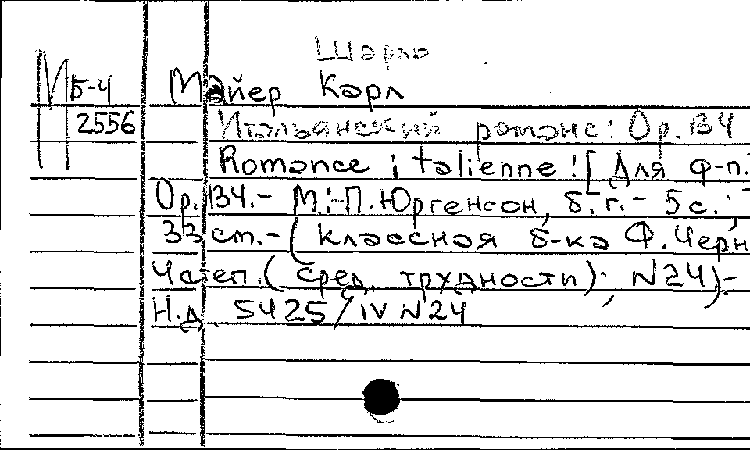 Шарло
М Б-4 Майер Карл
2556 Итальянский романс: Op. 134
Romance italienne: [Для ф-п.
Op. 134.- М.: П. Юргенсон, б.г.- 5 с.;
33 см.- (Классная б-ка Ф. Черн
Ч степ. (сред. трудности); N24)-
Н.д. 5425/IV N24